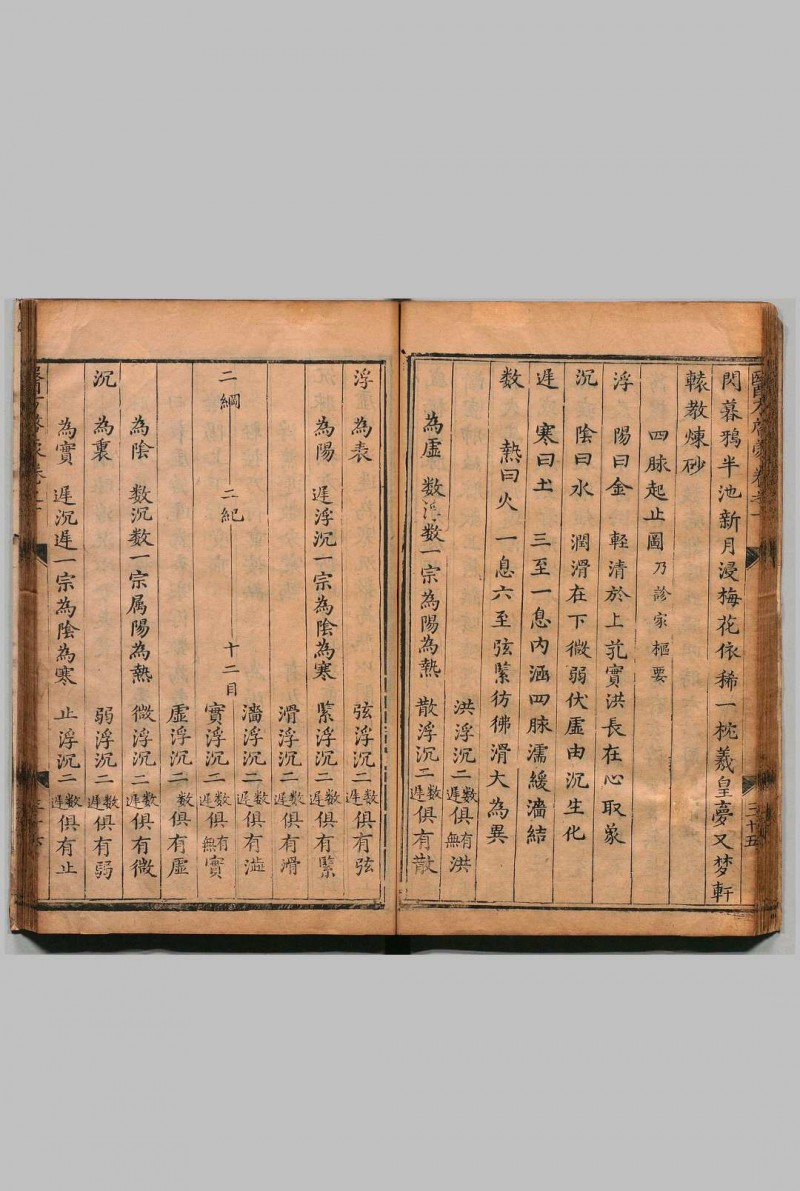 閃暮鴉半池新月浸梅花依稀一枕羲皇夢又梦軒
轅教煉砂
四脉起止圖乃診家樞要
浮 陽曰金 輕清於上芤實洪長在心取象
沉 陰曰水 潤滑在下微弱伏虛由沉生化
遲 寒曰土 三至一息内涵四脉濡緩濇結
数 熱曰火 一息六至弦緊彷彿滑大為異
洪浮沉二数遲俱有無洪
為虛 数浮数一宗為陽為熱 散浮沉二数遲俱有散
浮 為表 弦浮沉二数遲俱有弦
為陽 遲浮沉一宗為陰為寒 緊浮沉二数遲俱有緊
滑浮沉二数遲俱有滑
濇浮沉二数遲俱有澁
二綱 二紀 十二目 實浮沉二数遲俱有無實
虛浮沉二数俱有虛
為陰 数沉数一宗属陽為熱 微浮沉二数遲俱有微
沉 為裏 弱浮沉二数遲俱有弱
為實 遲沉遲一宗為陰為寒 止浮沉二数遲俱有止
三十五